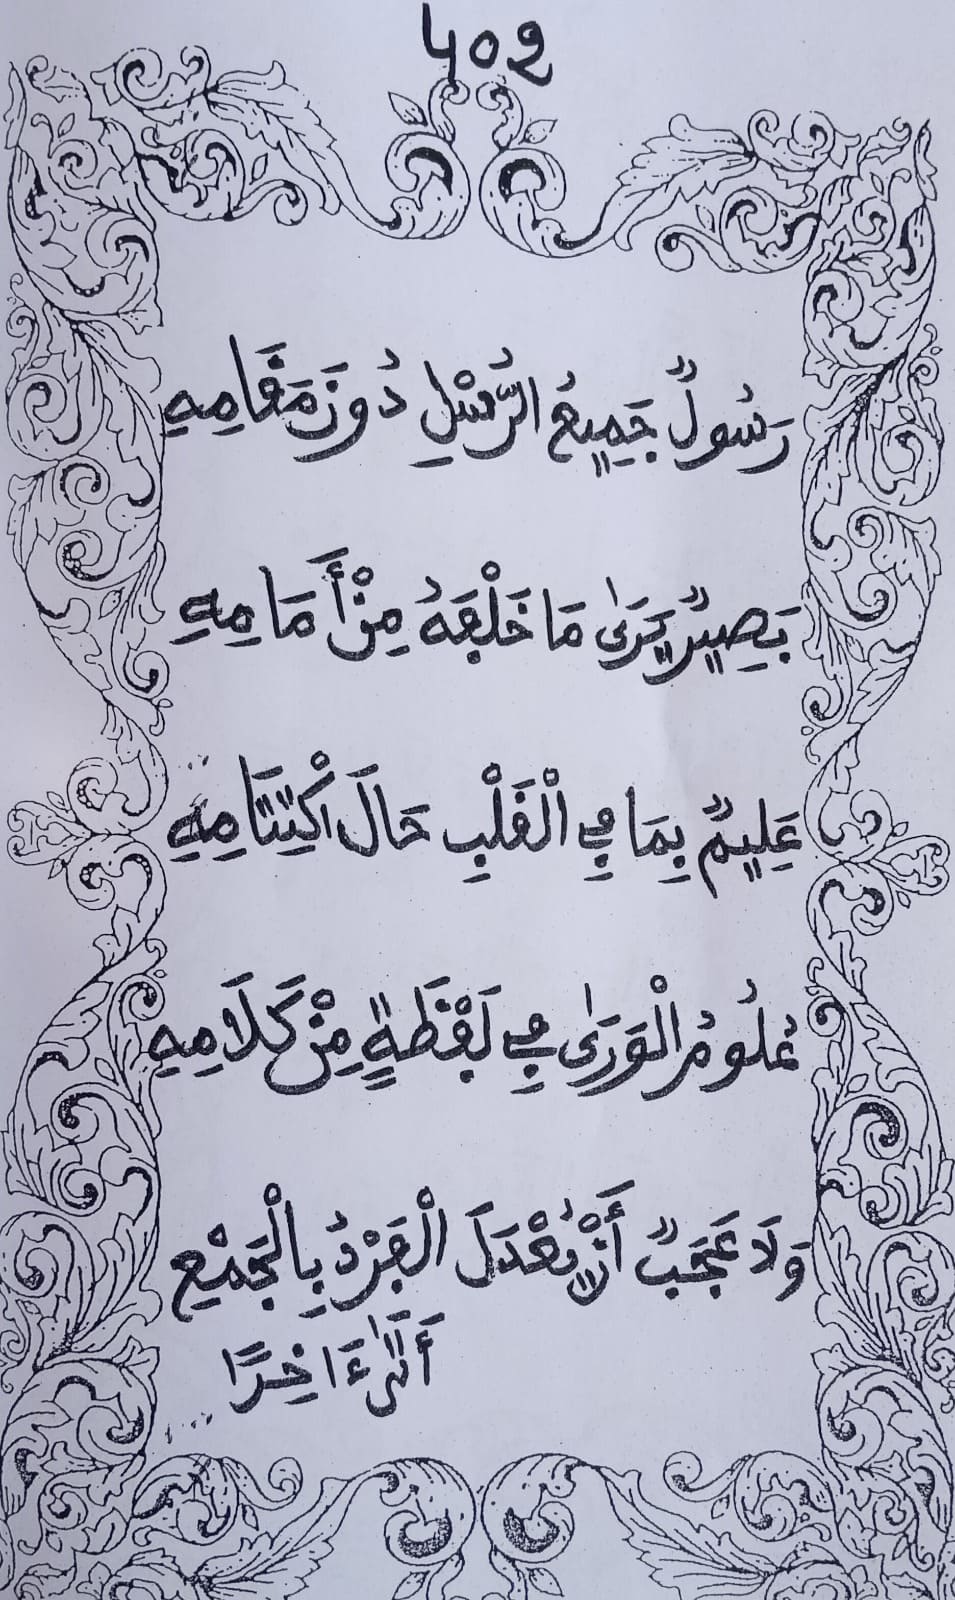 402
رَسُولٌ جَمِيعُ الرُّسْلِ دُونَ مَقَامِهِ
بَصِيرٌ يَرَىٰ مَا خَلْفَهُ مِنْ أَمَامِهِ
عَلِيمٌ بِمَا فِي الْقَلْبِ حَالَ اكْتِتَامِهِ
عُلُومُ الْوَرَىٰ فِي لَفْظَةٍ مِنْ كَلَامِهِ
وَلَا عَجَبٌ أَنْ يُعْدَلَ الْفَرْدُ بِالْجَمِيْعِ
أَتَىٰ ءَاخِرًا